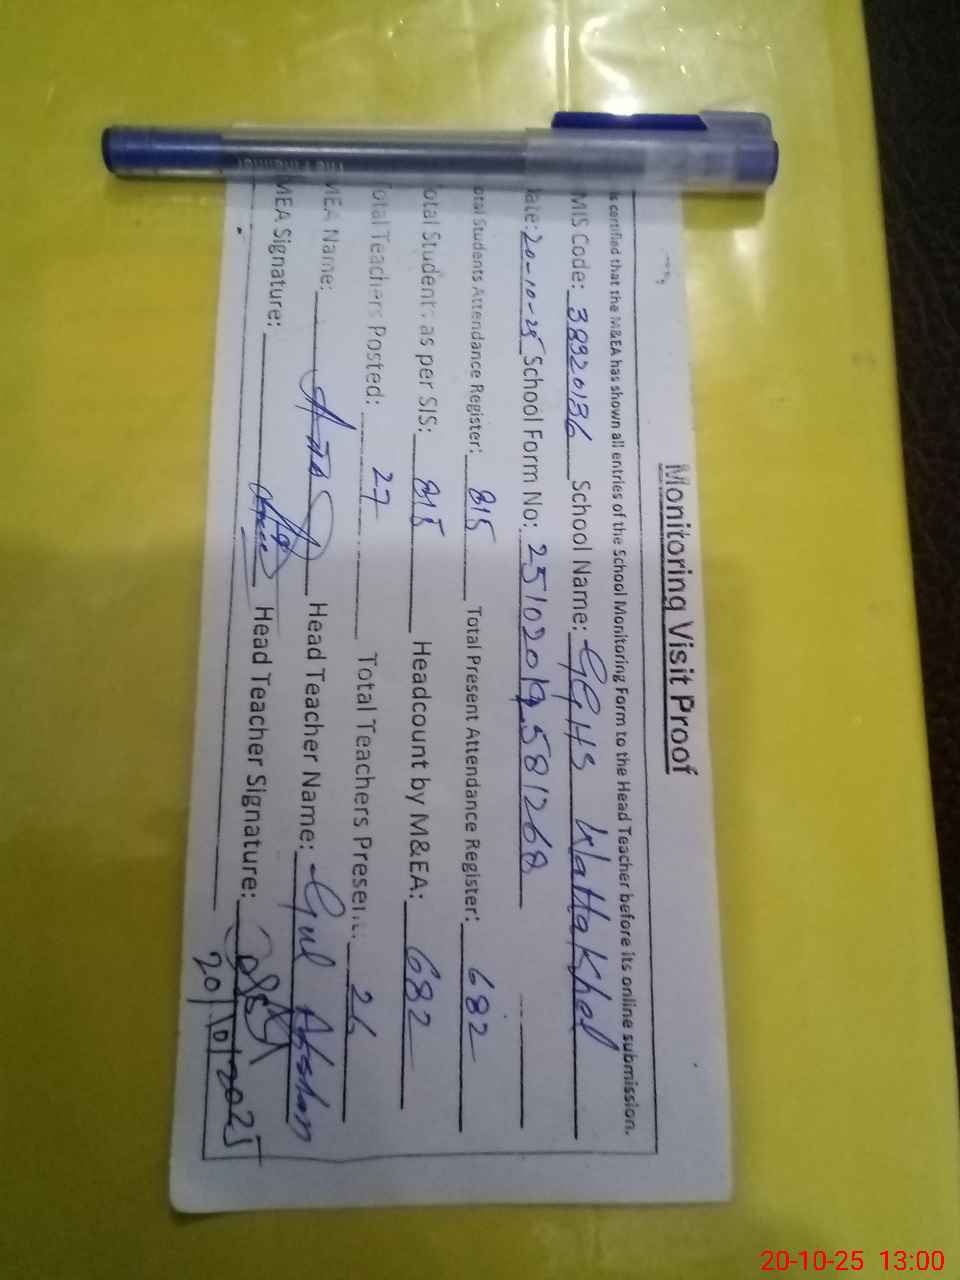 Monitoring Visit Proof
is certified that the M&EA has shown all entries of the School Monitoring Form to the Head Teacher before its online submission.
MIS Code: 38920136 School Name: GGHS
Date: 20-10-25 School Form No: 25102019581268
otal Students Attendance Register: 815 Total Present Attendance Register: 682
otal Students as per SIS: 815 Headcount by M&EA: 682
otal Teachers Posted: 27 Total Teachers Present: 26
MEA Name: Head Teacher Name: Gul Afshan
MEA Signature: Head Teacher Signature:
20/10/2025
20-10-25 13:00